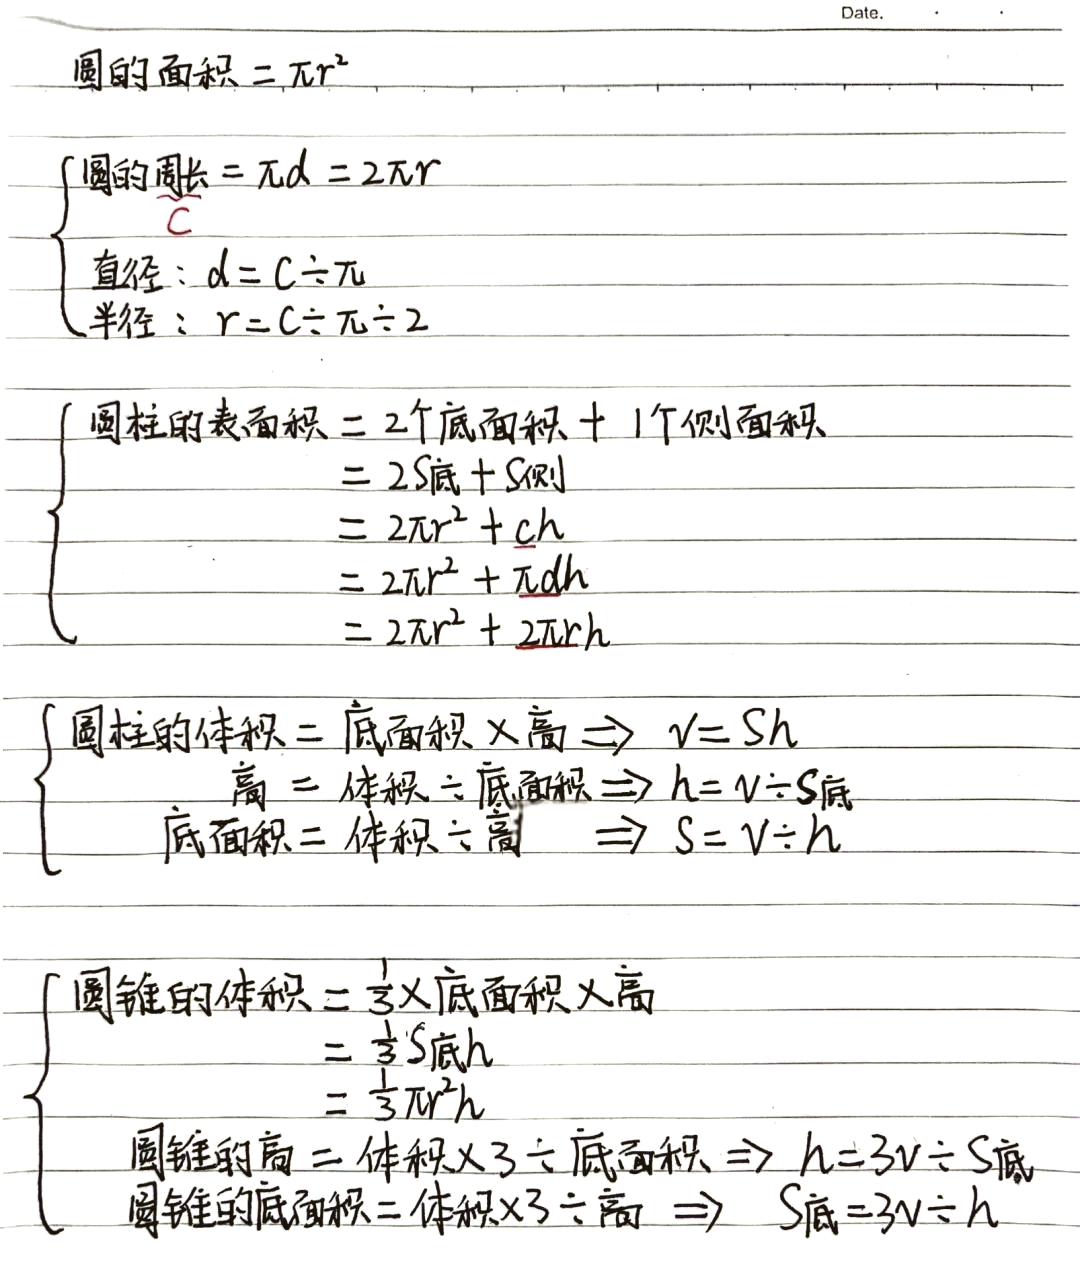 Date.
圆的面积 = πr²
圆的周长 = πd = 2πr
C
直径: d = C÷π
半径: r = C÷π÷2
圆柱的表面积 = 2个底面积 + 1个侧面积
= 2S底 + S侧
= 2πr² + ch
= 2πr² + πdh
= 2πr² + 2πrh
圆柱的体积 = 底面积×高 ⇒ V = Sh
高 = 体积÷底面积 ⇒ h = V÷S底
底面积 = 体积÷高 ⇒ S = V÷h
圆锥的体积 = 1/3×底面积×高
= 1/3 S底h
= 1/3 πr²h
圆锥的高 = 体积×3÷底面积 ⇒ h = 3V÷S底
圆锥的底面积 = 体积×3÷高 ⇒ S底 = 3V÷h